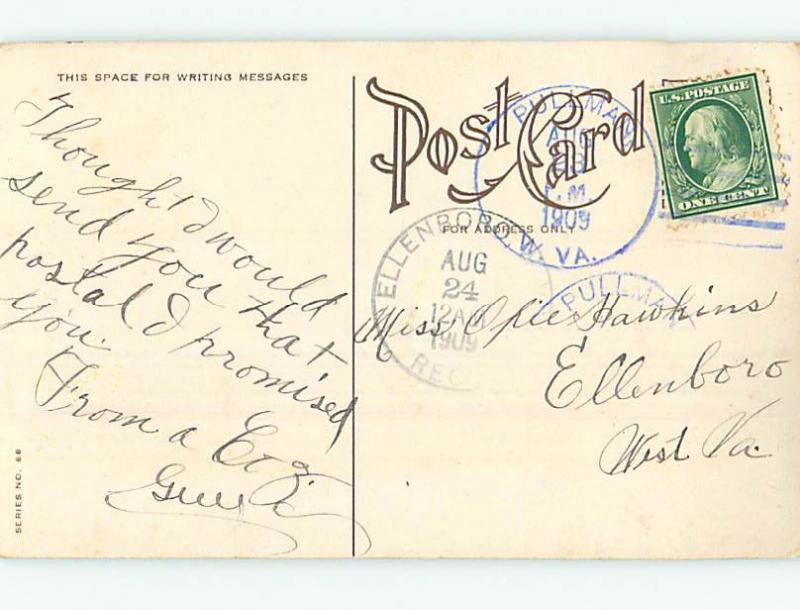 THIS SPACE FOR WRITING MESSAGES
Though I would
send you that
postal I promised
you.
From a
SERIES NO. 68
Post Card
FOR ADDRESS ONLY
PULLMAN
AUG
1909
W. VA.
U.S. POSTAGE
ONE CENT
ELLENBORO, W.
AUG
24
12
1909
REC
PULLMAN
Miss Opie Hawkins
Ellenboro
West Va.